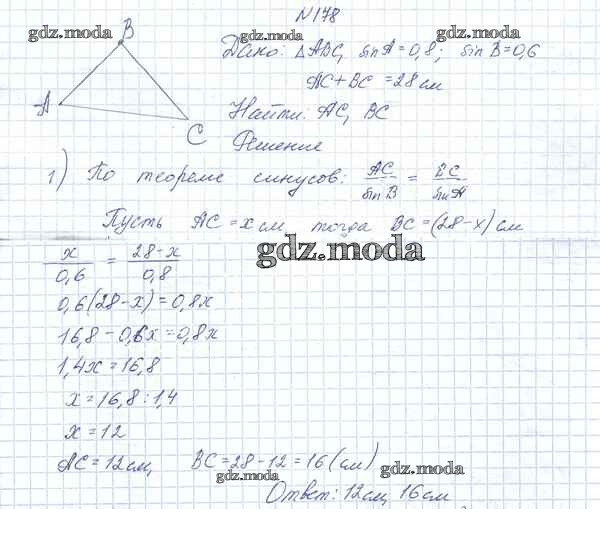 N178
gdz.moda
B
gdz.moda
Дано: △ABC, sin A = 0,8; sin B = 0,6
AC + BC = 28 см
A
Найти: AC, BC
C
Решение
gdz.moda
1) По теореме синусов: AC/sin B = BC/sin A
Пусть AC = x см тогда BC = (28-x) см
x/0,6 = 28-x/0,8
gdz.moda
0,6(28-x) = 0,8x
16,8 - 0,6x = 0,8x
1,4x = 16,8
x = 16,8 : 1,4
x = 12
AC = 12 см, BC = 28 - 12 = 16 (см)
gdz.moda
Ответ: 12 см, 16 см
gdz.moda